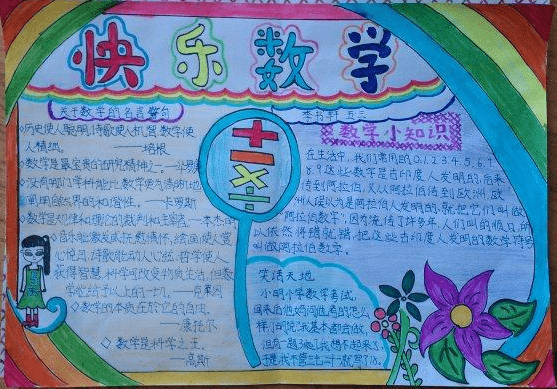 快乐数学
关于数学的名言警句
李书轩 五三
◇历史使人聪明,诗歌使人机智,数学使
人精细。 ——培根
◇数学是最宝贵的研究精神之一。—华罗庚
◇没有哪门学科能比数学更为清晰地
阐明自然界的和谐性。——卡罗斯
◇数学是规律和理论的裁判和主宰者——本杰明
◇音乐能激发或抚慰情怀,绘画使人赏
心悦目,诗歌能动人心弦,哲学使人
获得智慧,科学可改变物质生活,但数
学能给予以上的一切。——克莱因
◇数学的本质在於它的自由。
——康托尔
◇数学是科学之王。
——高斯
+
−
×
÷
数学小知识
在生活中,我们常用的0.1.2.3.4.5.6.7
8.9这些数字是古印度人发明的,后来
传到阿拉伯,又从阿拉伯传到欧洲,欧
洲人误以为是阿拉伯人发明的,就把它们叫做
“阿拉伯数字”,因为流传了许多年,人们叫的顺口,所
以依然将错就错,把这些古印度人发明的数字符号
叫做阿拉伯数字。
笑话天地
小明小学数学考试,
回来后他妈问他考的怎么
样?他说:我基本都会做,
但有一题3乘7我想不起来了,
于是我不管三七二十一就写了18。